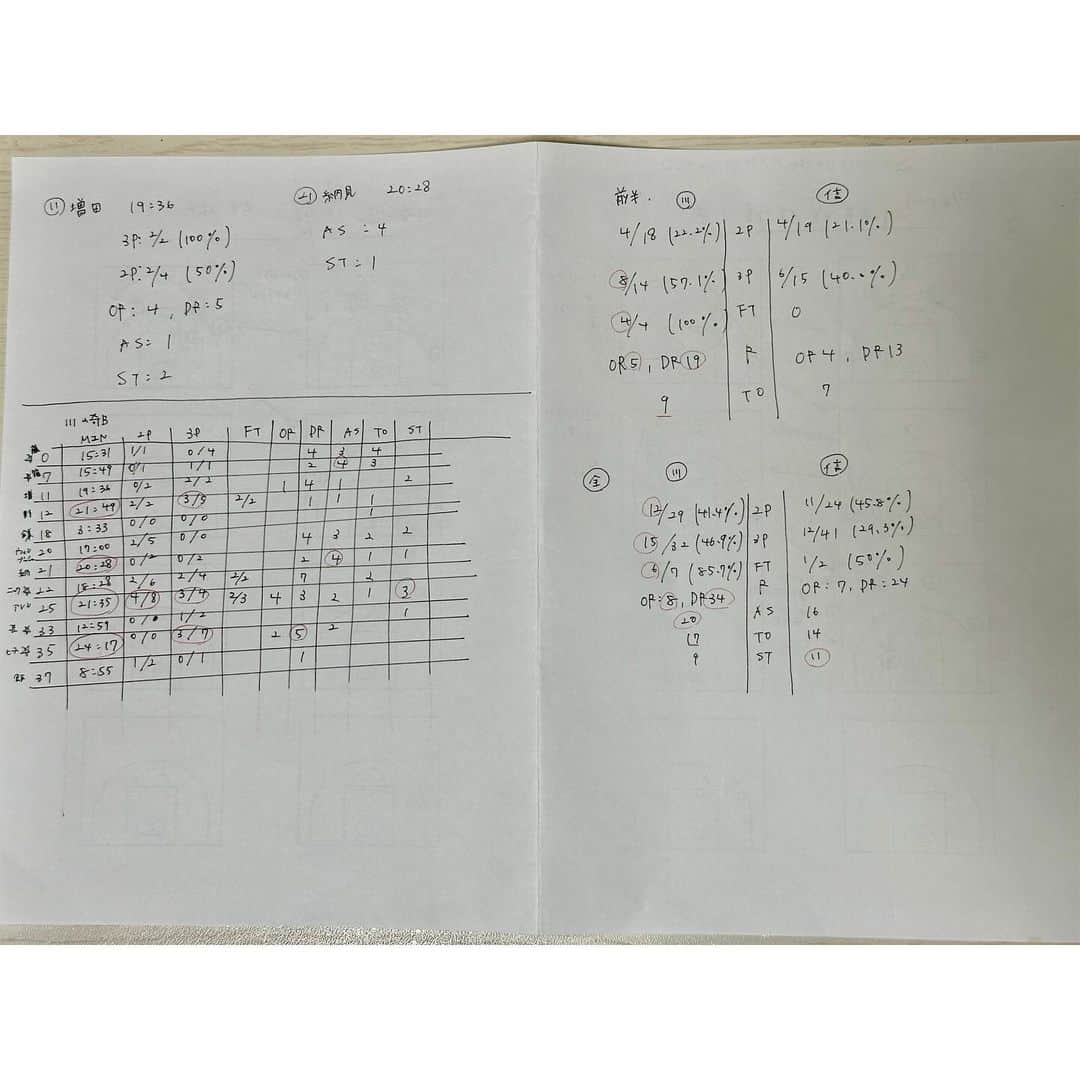 ⑪ 増田 19:36
3P: 2/2 (100%)
2P: 2/4 (50%)
OR: 4, DR: 5
AS: 1
ST: 2
㉑ 納見 20:28
AS: 4
ST: 1
川崎B
MIN 2P 3P FT OR DR AS TO ST
0 15:31 1/1 0/4 4 3 4
7 15:49 0/1 1/1 2 4 3
11 19:36 0/2 2/2 1 4 1 2
12 21:49 2/2 3/5 2/2 1 1 1
18 3:33 0/0 0/0 1
20 17:00 2/5 0/0 4 3 2 2
21 20:28 0/2 0/2 2 4 1 1
22 18:28 2/6 2/4 2/2 7 2
25 21:35 4/8 3/4 2/3 4 3 2 1 3
33 12:59 0/0 1/2 1
35 24:17 0/0 3/7 2 5 2
37 8:55 1/2 0/1 1
前半. 川 信
4/18 (22.2%) 2P 4/19 (21.1%)
8/14 (57.1%) 3P 6/15 (40.0%)
4/4 (100%) FT 0
OR5, DR19 R OR4, DR13
9 TO 7
全 川 信
12/29 (41.4%) 2P 11/24 (45.8%)
15/32 (46.9%) 3P 12/41 (29.3%)
6/7 (85.7%) FT 1/2 (50%)
OR: 8, DR34 R OR: 7, DR: 24
20 AS 16
17 TO 14
9 ST 11